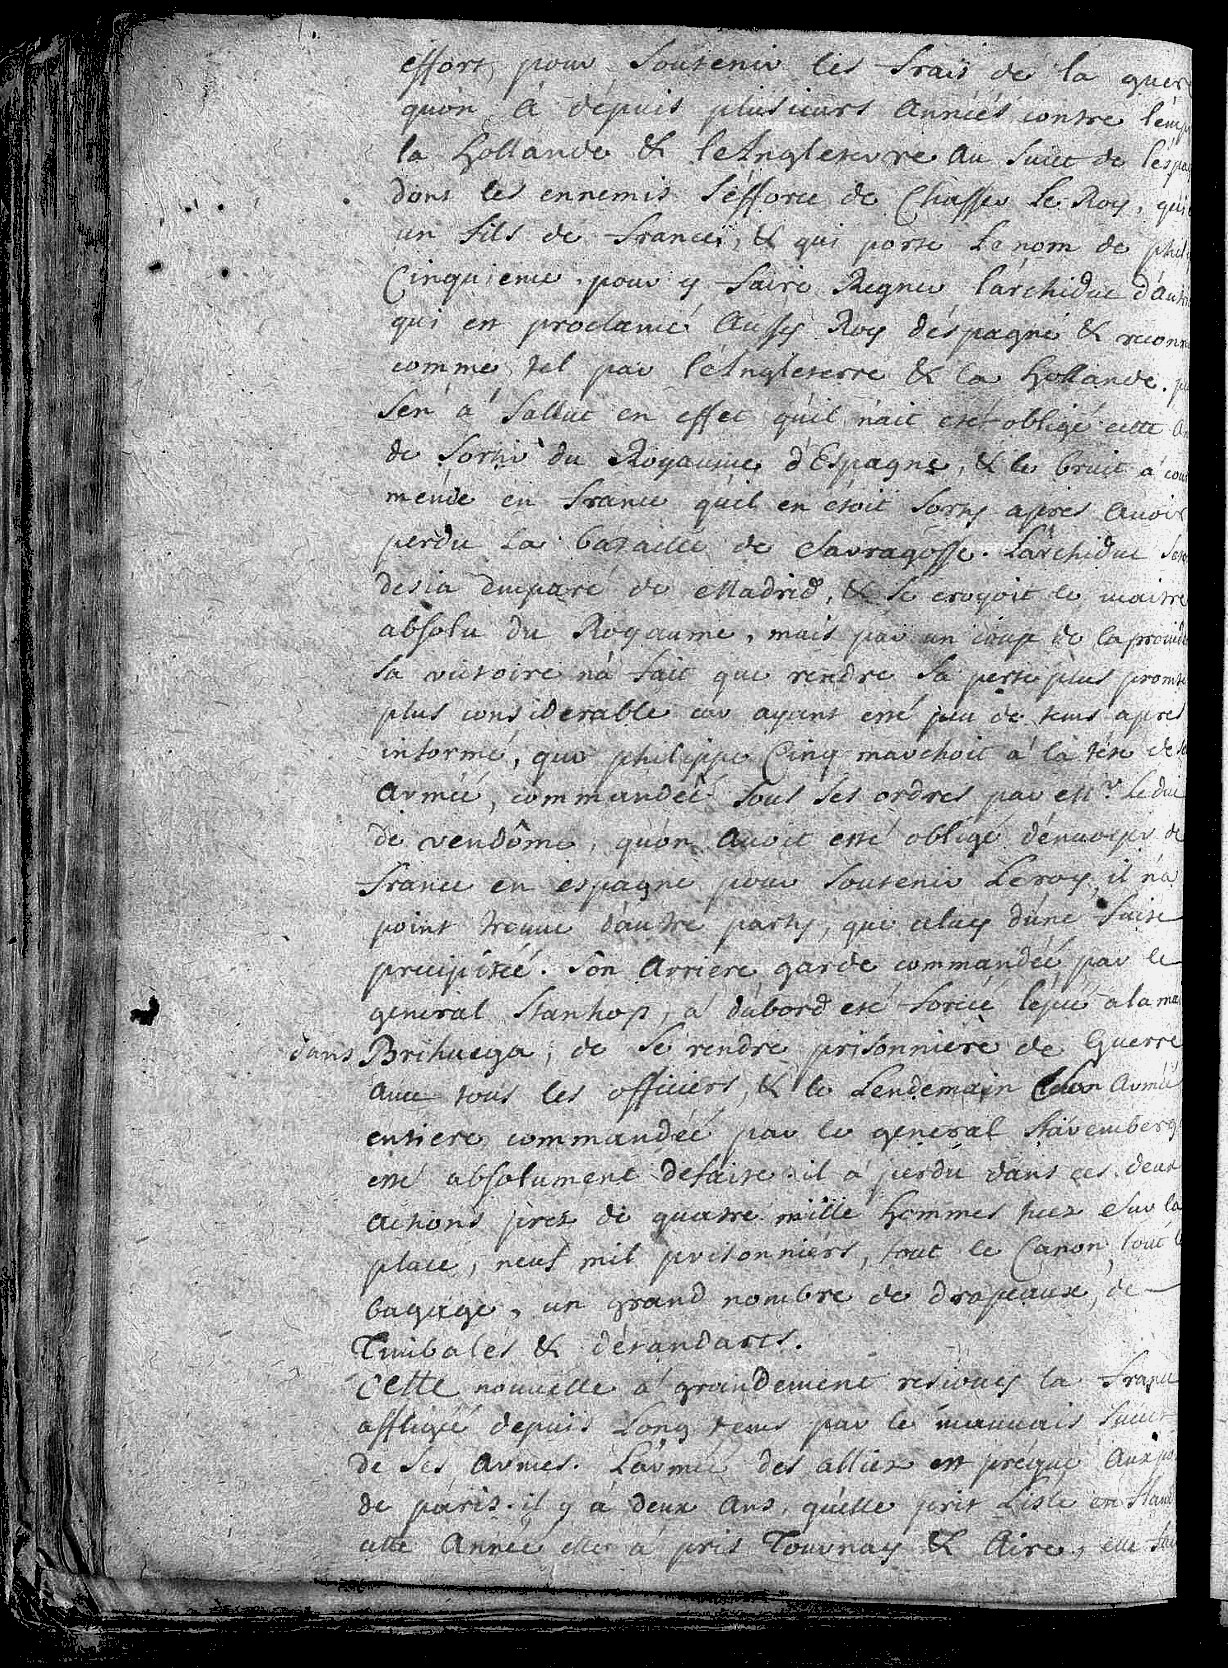 effort, pour soutenir les frais de la guer
qu'on à dépuis plusieurs Années contre l'em
la Hollande & le Angleterre Au suiet de l'espa
dont les ennemis s'éfforce de Chasser Le Roy, qui
un fils de françe, & qui porte Le nom de phil
Cinquieme. pour y faire Regner l'archiduc d'Autr
qui est proclamé Aussy Roy d'éspagne & reconn
comme tel par l'Angleterre & la Hollande.
s'en à fallut en effet qu'il n'ait esté obligé cette
de sortir du Royaume d'Espagne, & le bruit à cou
méme en france qu'il en étoit sorty apres Avoir
perdu La bataille de Sarragosse. L'archiduc
desia emparé de Madrid, & se croyoit le maitre
absolu du Royaume, mais par un coup de la provid
sa victoire n'à fait que rendre sa perte plus promte
plus considerable car ayant esté peu de tems apres
informé, que philippe Cinq marchoit à la téte de
Armée, commandée sous ses ordres par Mr. Le duc
de vendôme, qu'on Avoit esté obligé d'énvoyer de
france en espagne pour soutenir Le roy, il n'a
point trouvé d'autre party, que celuy d'une fuite
precipitée. son Arriere garde commandée par le
general Stanhop, à d'abord esté forcée l'épée à la ma
dans Brihuega, de sé rendre prisonniére de Guerre
Avec tous les officiers, & le Lendemain son Armée
entiere commandée par le general Staremberg
esté absolument défaite. il à perdu dans ces deux
Actions prez de quatre mille hommes tuez sur la
place, neuf mil prisonniérs, tout le Canon, tout l
bagage, un grand nombre de drapeaux, de
Timbales & d'étandarts.
Cette nouvelle à grandement resiouy la france
affligée depuis Long tems par le mauvais succez
de ses Armes. L'armée des alliez est présque Aux po
de paris. il y à deux Ans, qu'elle prit Lisle en fland
cette Année elle à pris Tournay & Aire, elle